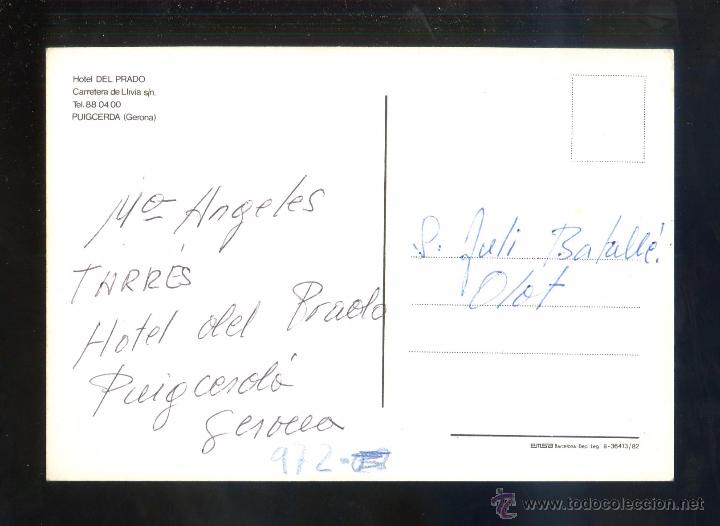 Hotel DEL PRADO
Carretera de Llivia s/n.
Tel. 88 04 00
PUIGCERDA (Gerona)
Mª Angeles
TARRÉS
Hotel del Prado
Puigcerdá
Gerona
972-
S. Juli Batallé.
Olot
EMSA Barcelona-Dep. Leg. B-36413/82
www.todocoleccion.net